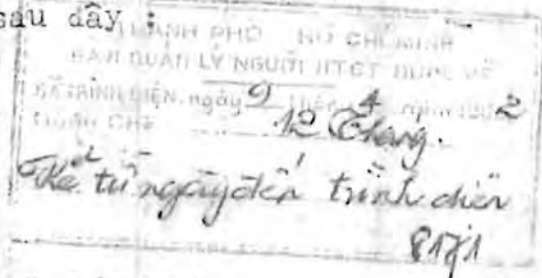 sau đây :
THÀNH PHỐ HỒ CHÍ MINH
BAN QUẢN LÝ NGƯỜI HTCT ĐƯỢC VỀ
ĐÃ TRÌNH DIỆN. ngày 9 tháng 4 năm 1982
QUẢN CHẾ 12 tháng.
Kể từ ngày đến trình diện